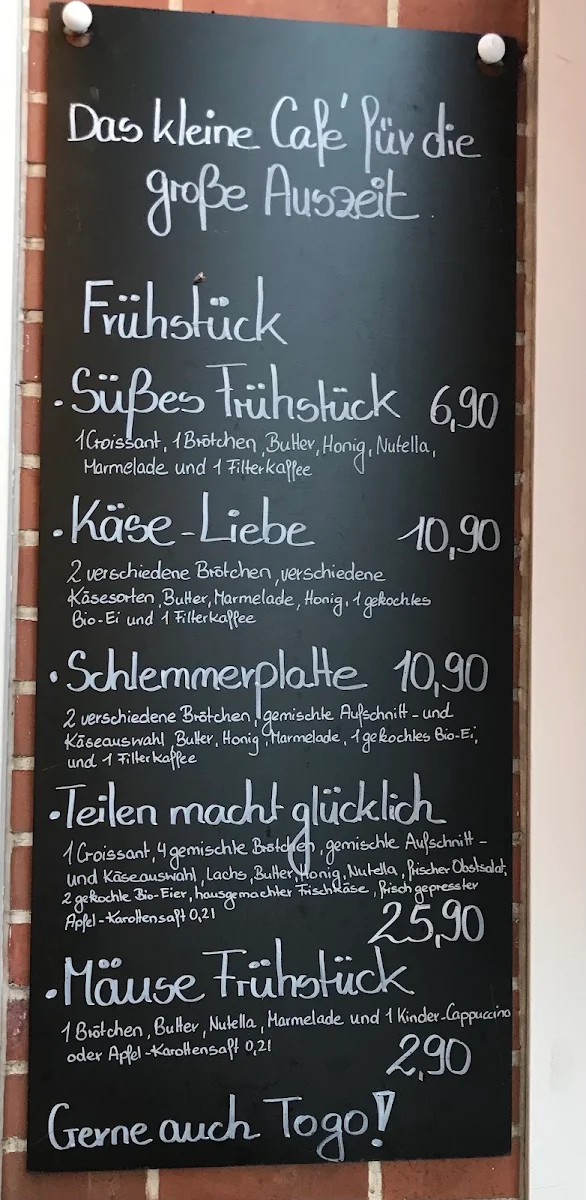 Das kleine Café für die
große Auszeit
Frühstück
· Süßes Frühstück 6,90
1 Croissant, 1 Brötchen, Butter, Honig, Nutella,
Marmelade und 1 Filterkaffee
· Käse-Liebe 10,90
2 verschiedene Brötchen, verschiedene
Käsesorten, Butter, Marmelade, Honig, 1 gekochtes
Bio-Ei und 1 Filterkaffee
· Schlemmerplatte 10,90
2 verschiedene Brötchen, gemischte Aufschnitt- und
Käseauswahl, Butter, Honig, Marmelade, 1 gekochtes Bio-Ei,
und 1 Filterkaffee
· Teilen macht glücklich
1 Croissant, 4 gemischte Brötchen, gemischte Aufschnitt-
und Käseauswahl, Lachs, Butter, Honig, Nutella, frischer Obstsalat,
2 gekochte Bio-Eier, hausgemachter Frischkäse, frisch gepresster
Apfel-Karottensaft 0,2l
25,90
· Mäuse Frühstück
1 Brötchen, Butter, Nutella, Marmelade und 1 Kinder-Cappuccino
oder Apfel-Karottensaft 0,2l
2,90
Gerne auch Togo!